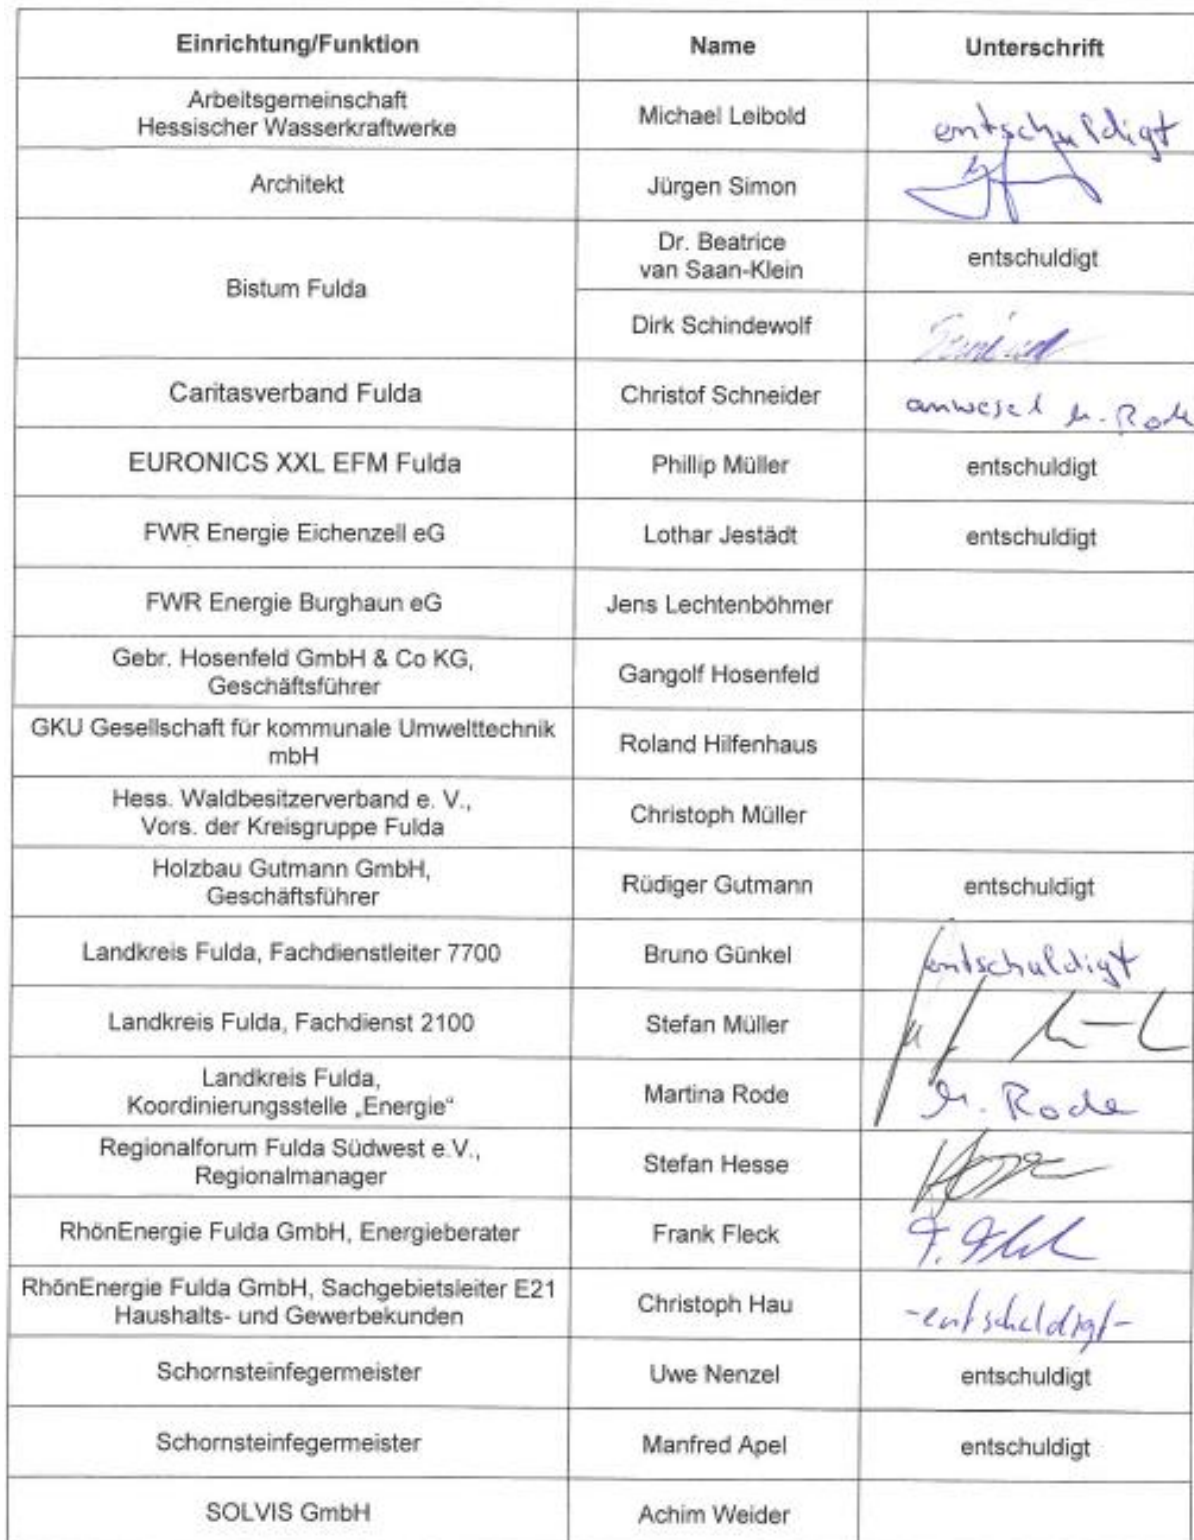 Einrichtung/Funktion Name Unterschrift
Arbeitsgemeinschaft
Hessischer Wasserkraftwerke Michael Leibold entschuldigt
Architekt Jürgen Simon
Bistum Fulda
Dr. Beatrice
van Saan-Klein entschuldigt
Dirk Schindewolf
Caritasverband Fulda Christof Schneider M. Rode
EURONICS XXL EFM Fulda Phillip Müller entschuldigt
FWR Energie Eichenzell eG Lothar Jestädt entschuldigt
FWR Energie Burghaun eG Jens Lechtenböhmer
Gebr. Hosenfeld GmbH & Co KG,
Geschäftsführer Gangolf Hosenfeld
GKU Gesellschaft für kommunale Umwelttechnik
mbH Roland Hilfenhaus
Hess. Waldbesitzerverband e. V.,
Vors. der Kreisgruppe Fulda Christoph Müller
Holzbau Gutmann GmbH,
Geschäftsführer Rüdiger Gutmann entschuldigt
Landkreis Fulda, Fachdienstleiter 7700 Bruno Günkel entschuldigt
Landkreis Fulda, Fachdienst 2100 Stefan Müller
Landkreis Fulda,
Koordinierungsstelle „Energie“ Martina Rode M. Rode
Regionalforum Fulda Südwest e.V.,
Regionalmanager Stefan Hesse
RhönEnergie Fulda GmbH, Energieberater Frank Fleck F. Fleck
RhönEnergie Fulda GmbH, Sachgebietsleiter E21
Haushalts- und Gewerbekunden Christoph Hau -entschuldigt-
Schornsteinfegermeister Uwe Nenzel entschuldigt
Schornsteinfegermeister Manfred Apel entschuldigt
SOLVIS GmbH Achim Weider